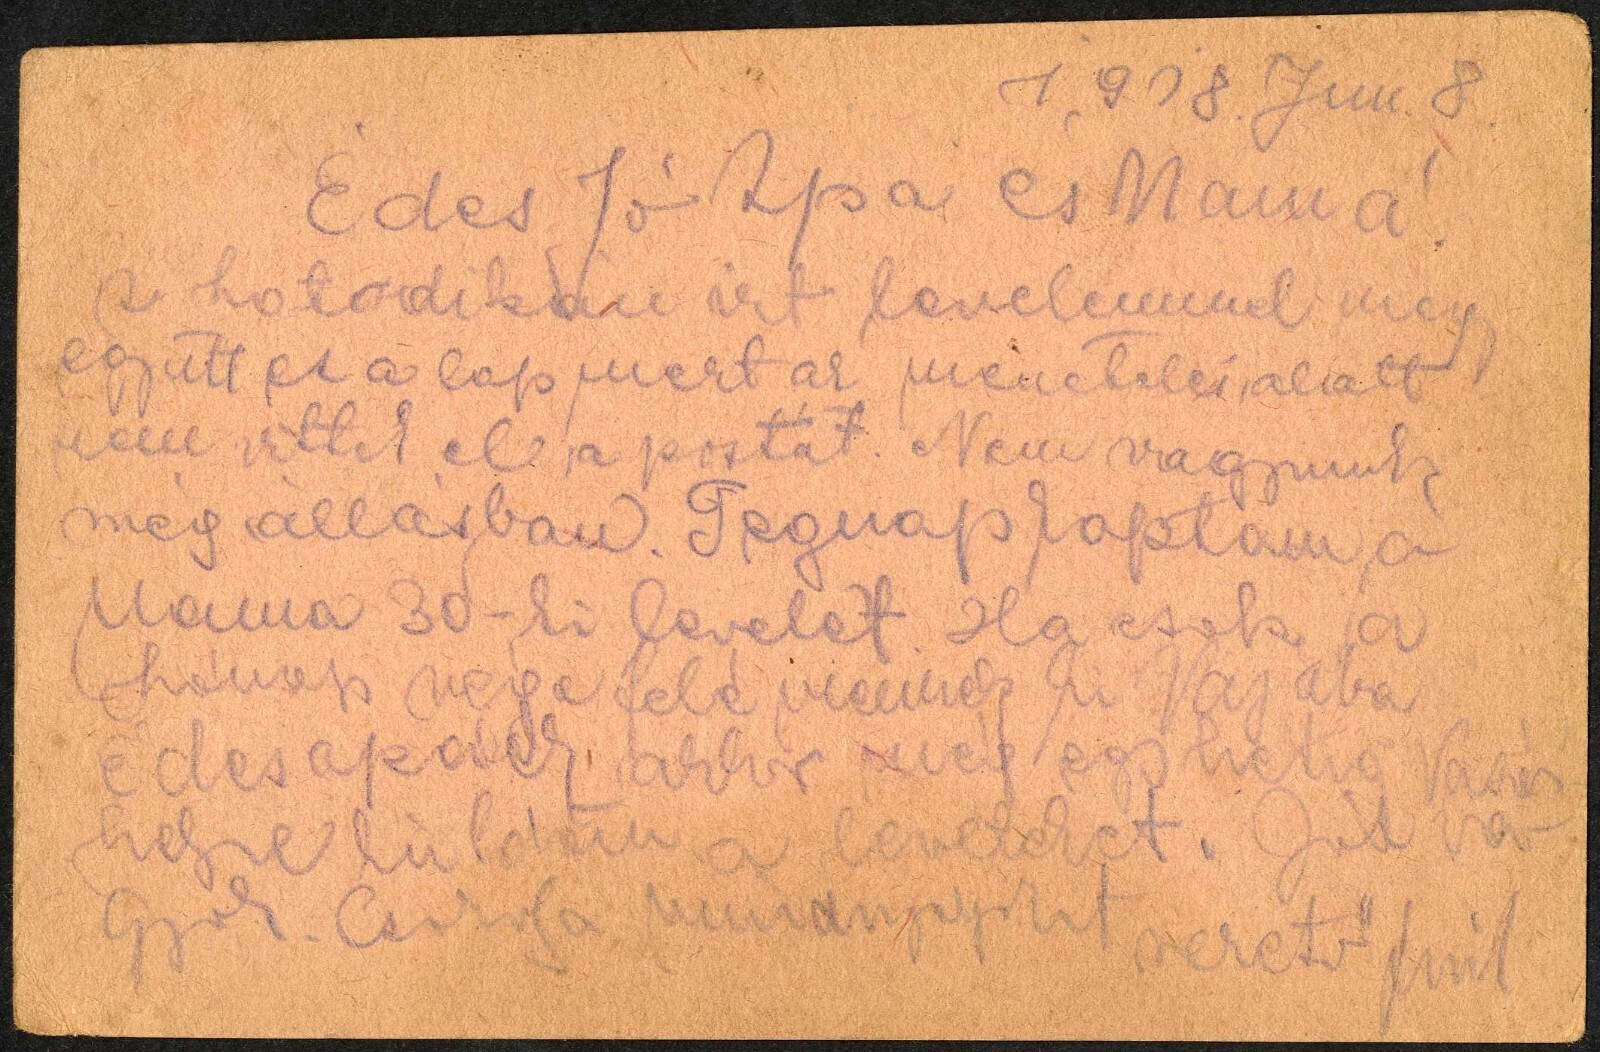 1918. Jun. 8.
Édes Jó Apa és Mama!
A hatodikán irt levelemmel meg
együtt ez a lap mert az menetelés alatt
nem vittek el a postát. Nem vagyunk
még állásban. Tegnap kaptam a
Mama 30-ki levelét. Ha csak a
hónap vége felé mennek ki Vajába
Édesapáék akkor még egy hétig Vásár
helyre küldöm a leveleket. Jól va
gyok. Csókolja mindnyájukat
szerető fiuk